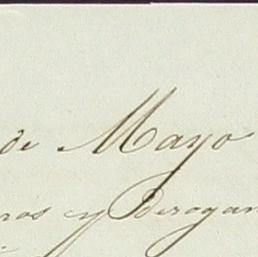 de Mayo
ros y Derogan